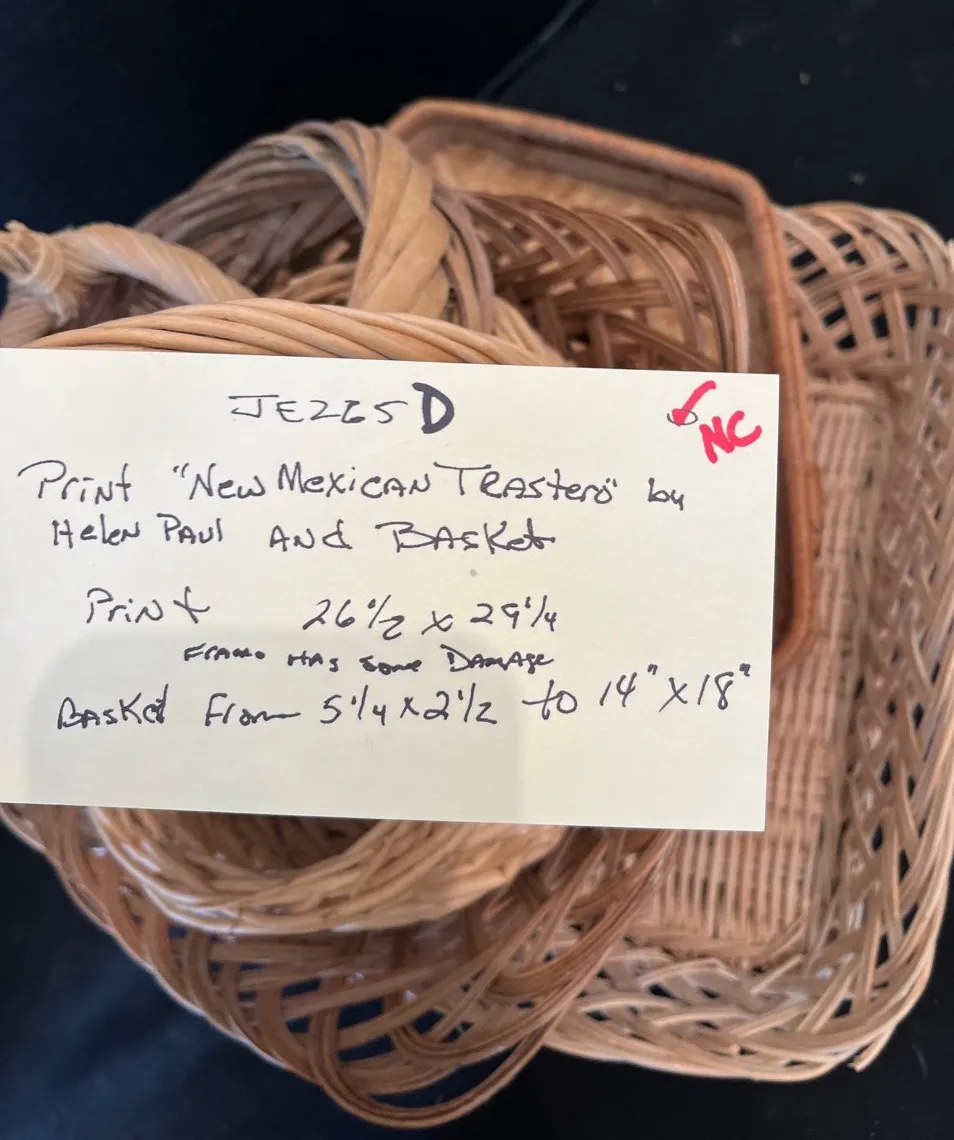 JE265D
NC
Print "New Mexican Trastero" by
Helen Paul And Basket
Print 26 1/2 x 29 1/4
Frame Has Some Damage
Basket From 5 1/4 x 2 1/2 to 14" x 18"